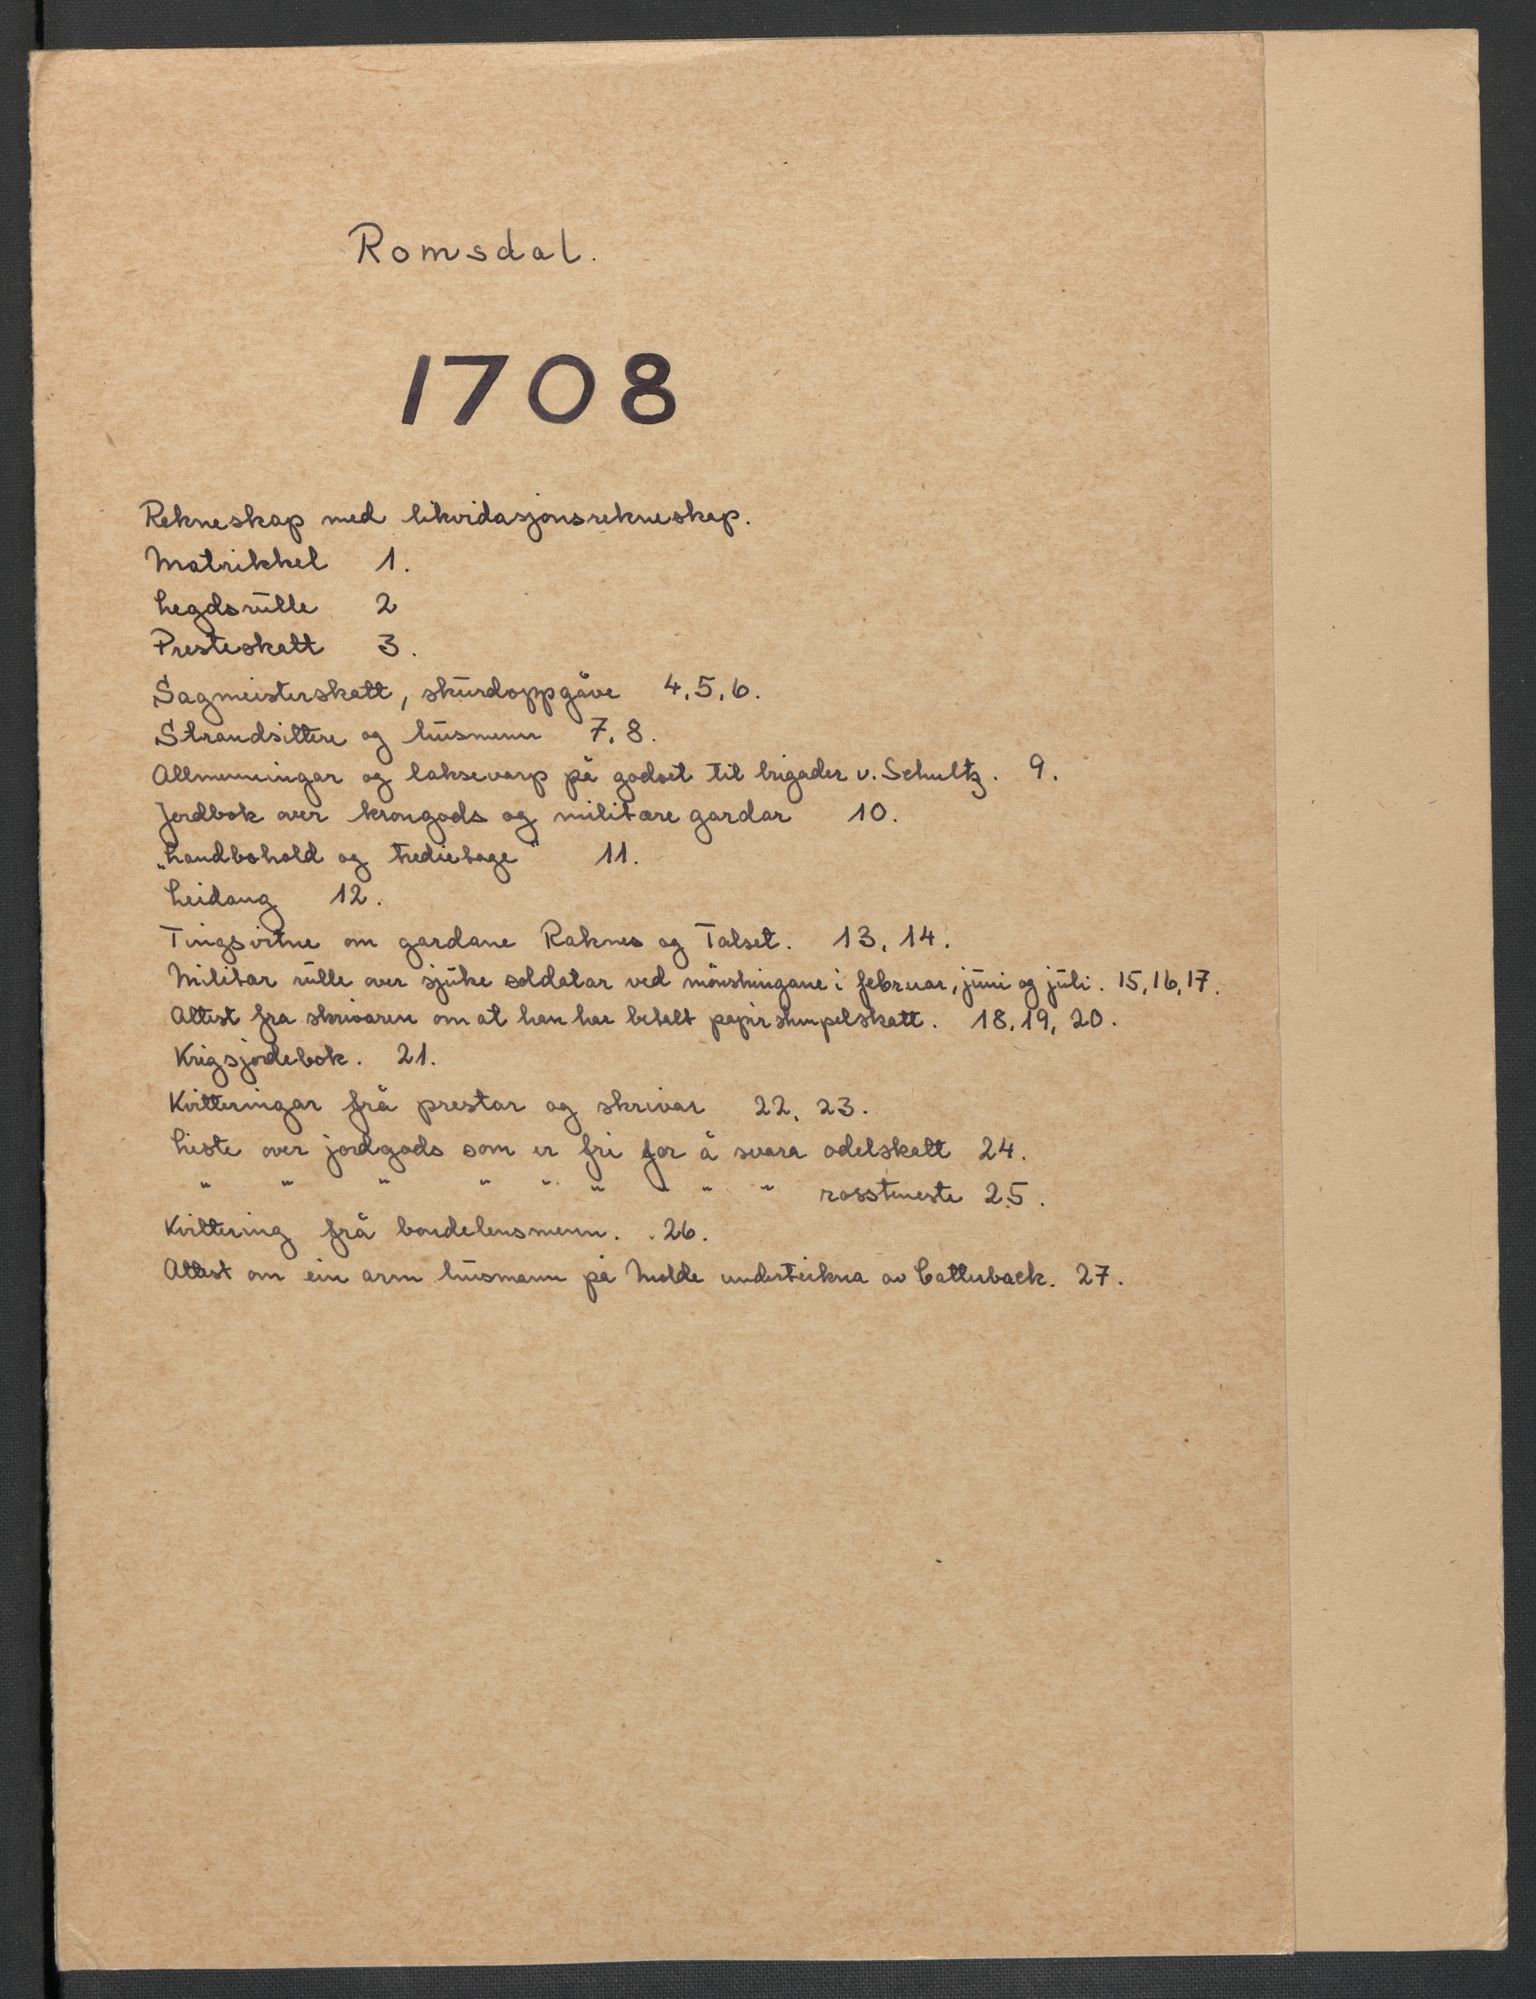 Romsdal.
1708
Rekneskap med likvidasjonsrekneskap.
Matrikkel 1.
Legdsrulle 2
Presteskatt 3.
Sagmeisterskatt, skurdoppgåve 4, 5, 6.
Strandsittere og husmenn 7, 8.
Allmenningar og laksevarp på godset til brigader v. Schultz. 9.
Jordbok over krongods og militære gardar 10.
"Landbohold og tredietage" 11.
Leidang 12.
Tingsvitne om gardane Raknes og Talset. 13, 14.
Militær rulle over sjuke soldatar ved mönstringane i februar, juni og juli. 15, 16, 17.
Attest fra skrivaren om at han har betalt papirstempelskatt. 18, 19, 20.
Krigsjordebok. 21.
Kvitteringar frå prestar og skrivar 22, 23.
Liste over jordgods som er fri for å svara odelskatt 24.
" " " " " " " " " rossteneste 25.
Kvittering frå bondelensmenn. 26.
Attest om ein arm husmann på Molde underteikna av Catterbaek. 27.